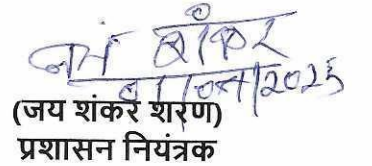 जय शंकर
2025
(जय शंकर शरण)
प्रशासन नियंत्रक